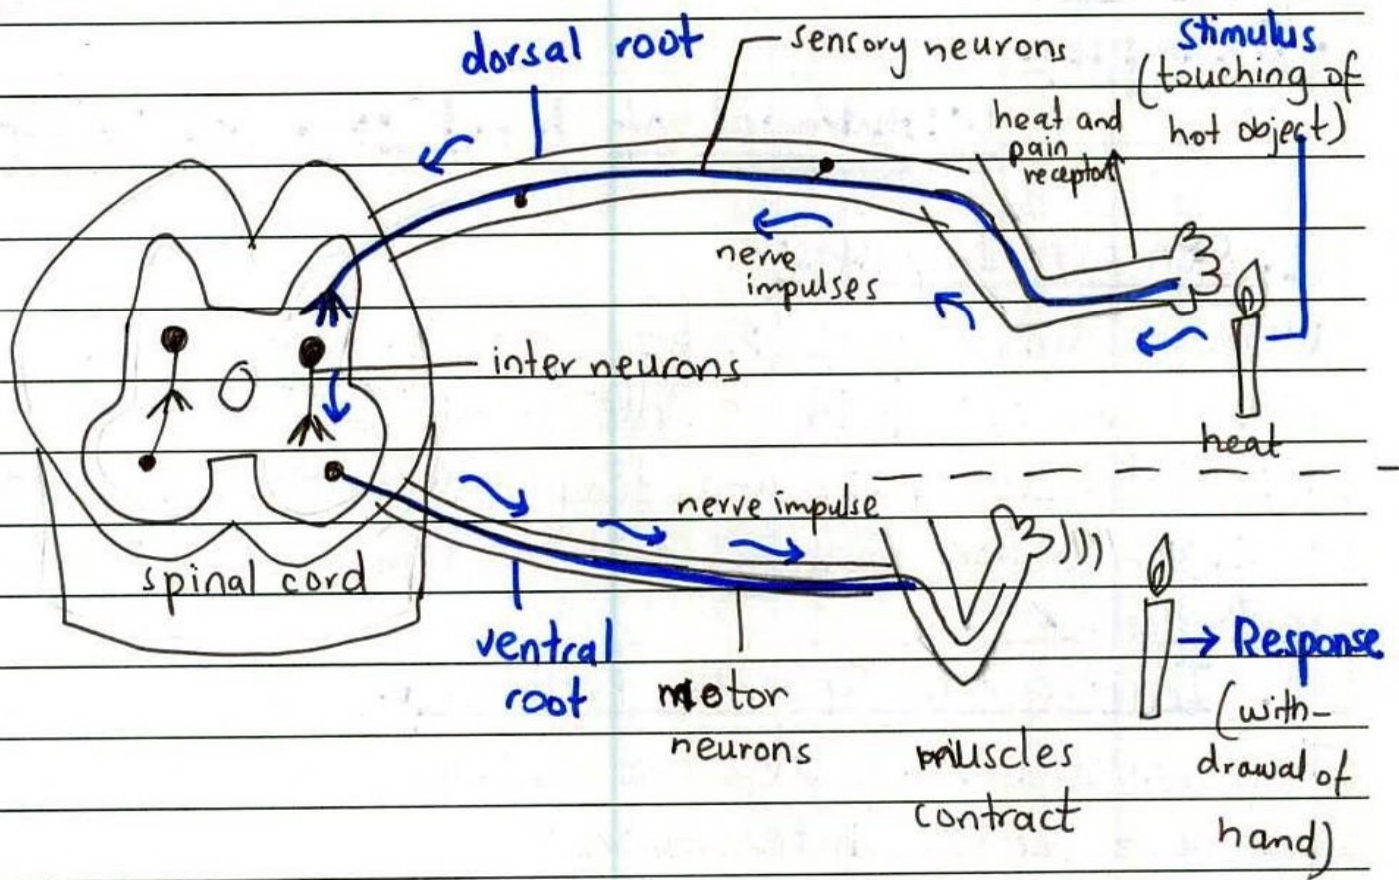 dorsal root
sensory neurons
stimulus
(touching of
hot object)
heat and
pain
receptors
nerve
impulses
inter neurons
heat
nerve impulse
spinal cord
ventral
root
motor
neurons
muscles
contract
→ Response
(with-
drawal of
hand)